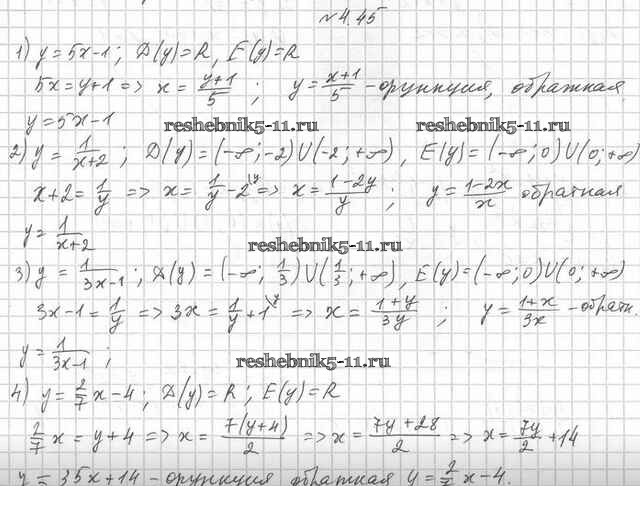 №4.45
1) y=5x-1; D(y)=R, E(y)=R
5x=y+1 => x=\frac{y+1}{5}; y=\frac{x+1}{5} - функция, обратная
y=5x-1
reshebnik5-11.ru reshebnik5-11.ru
2) y=\frac{1}{x+2}; D(y)=(-∞;-2)U(-2;+∞), E(y)=(-∞;0)U(0;+∞)
x+2=\frac{1}{y} => x=\frac{1}{y}-2^{\y} => x=\frac{1-2y}{y}; y=\frac{1-2x}{x} обратная
y=\frac{1}{x+2}
reshebnik5-11.ru
3) y=\frac{1}{3x-1}; D(y)=(-∞;\frac{1}{3})U(\frac{1}{3};+∞), E(y)=(-∞;0)U(0;+∞)
3x-1=\frac{1}{y} => 3x=\frac{1}{y}+1^{\y} => x=\frac{1+y}{3y}; y=\frac{1+x}{3x} - обратн.
y=\frac{1}{3x-1};
reshebnik5-11.ru
4) y=\frac{2}{7}x-4; D(y)=R; E(y)=R
\frac{2}{7}x=y+4 => x=\frac{7(y+4)}{2} => x=\frac{7y+28}{2} => x=\frac{7y}{2}+14
y=35x+14 - функция обратная y=\frac{2}{7}x-4.